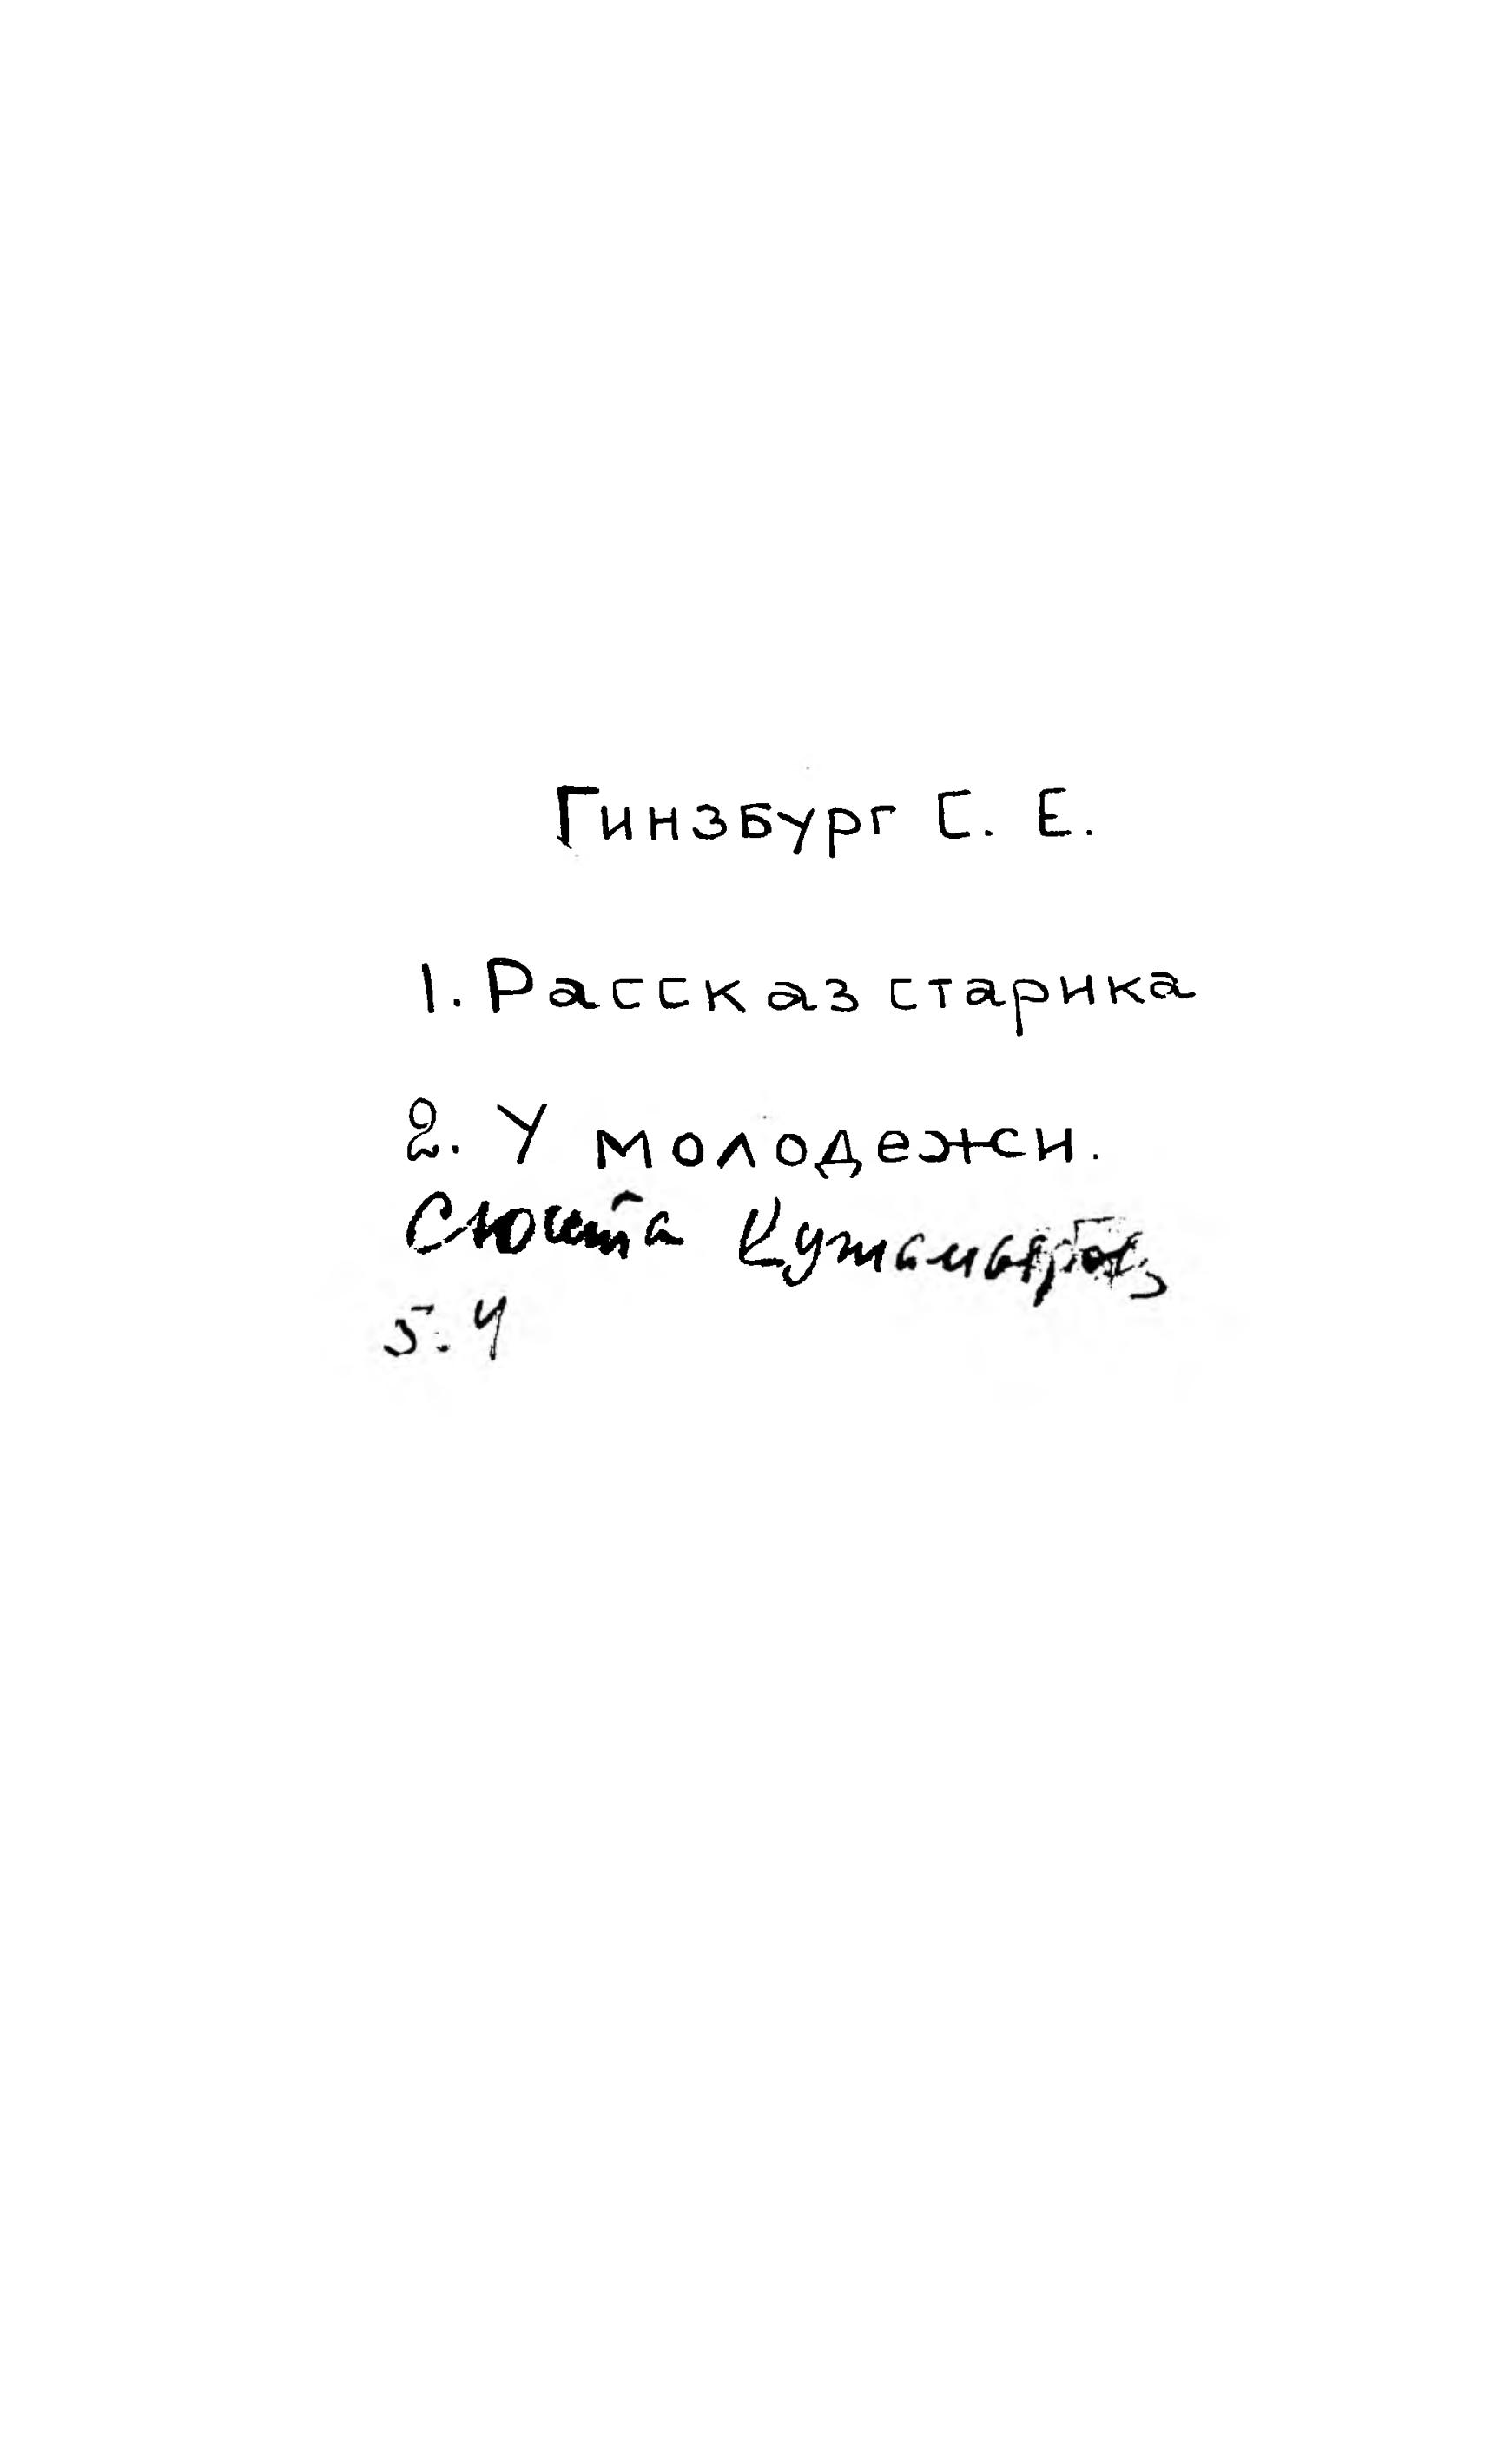 Гинзбург С. Е.
1. Рассказ старика
2. У молодежи.
Сюита
5. 4